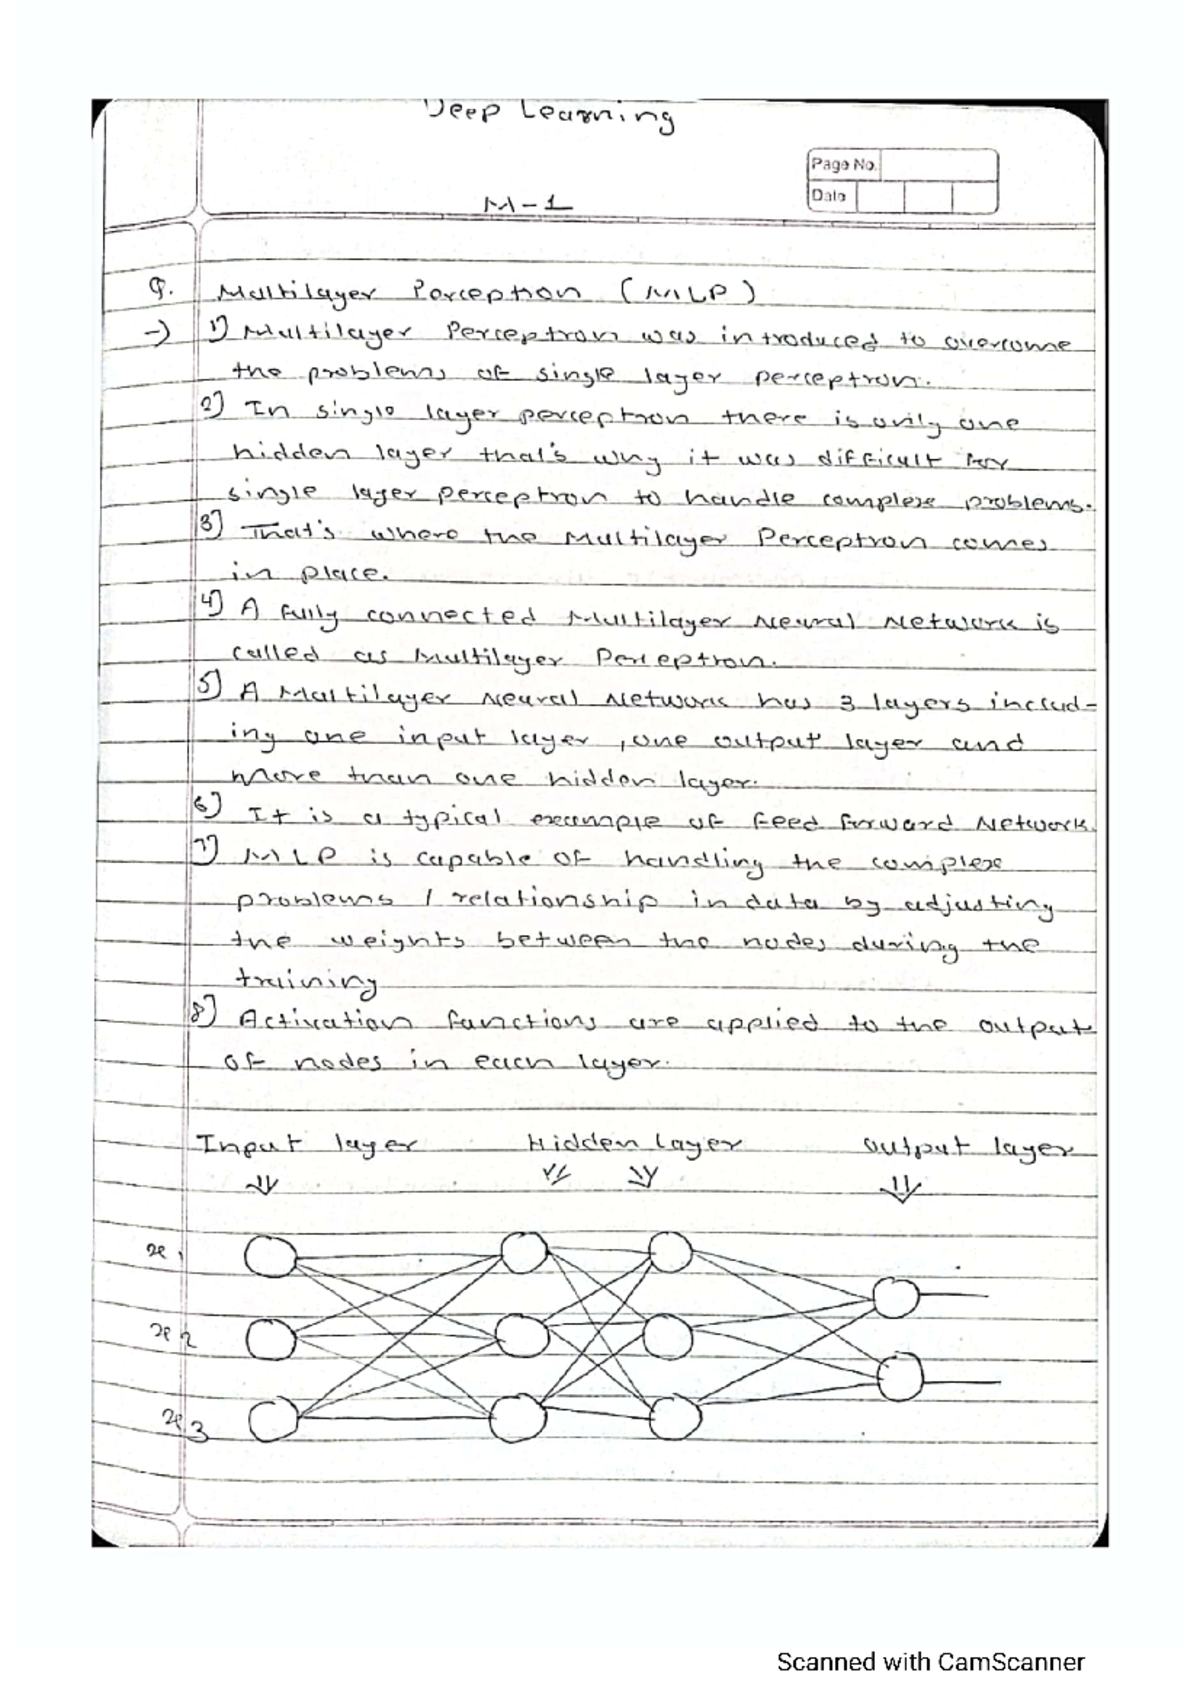 Deep Learning
Page No.
Date
M-1
Q. Multilayer Perception (MLP)
→ 1) Multilayer Perceptron was introduced to overcome
the problems of single layer perceptron.
2) In single layer perceptron there is only one
hidden layer that's why it was difficult for
single layer perceptron to handle complex problems.
3) That's where the Multilayer Perceptron comes
in place.
4) A fully connected Multilayer Neural Network is
called as Multilayer Perceptron.
5) A Multilayer Neural Network has 3 layers includ-
ing one input layer, one output layer and
more than one hidden layer.
6) It is a typical example of Feed forward Network.
7) MLP is capable of handling the complex
problems / relationship in data by adjusting
the weights between the nodes during the
training
8) Activation functions are applied to the output
of nodes in each layer.
Input layer Hidden Layer Output layer
x1
x2
x3
Scanned with CamScanner